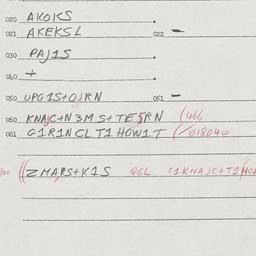 020 AKOKS .
021 AKEKSL 022 –
030 PAJ1S .
040 + .
050 UPG1S+OJRN 051 –
060 KNAJC+N3MS+TE5RN (466
061 C1R1NCLT1HOW1T (/018040
((ZMARS+K1S QGL C1KNAJC+T1HOW